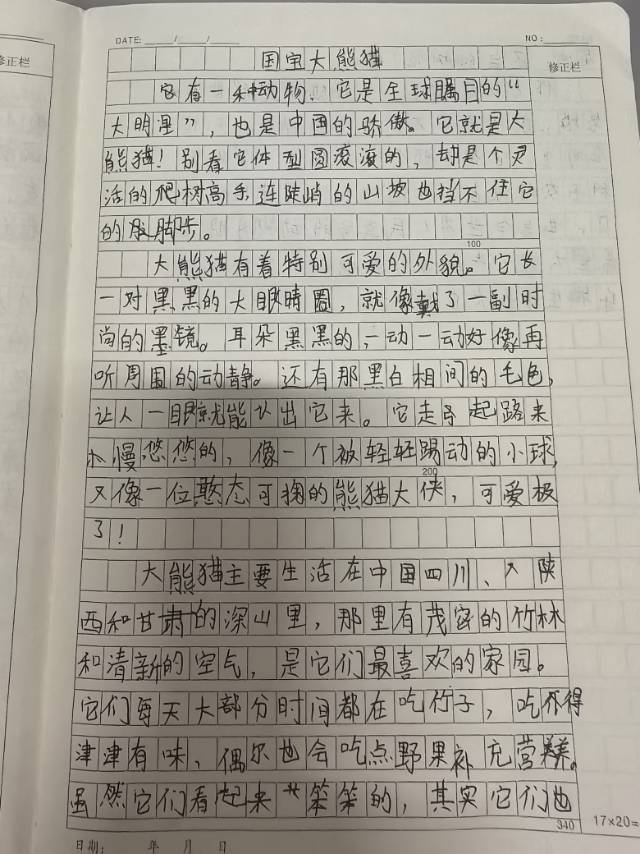 DATE: ___/___/___
NO:
修正栏
修正栏
国宝大熊猫
它有一种动物、它是全球瞩目的“
大明星”,也是中国的骄傲。它就是大
熊猫!别看它体型圆滚滚的,却是个灵
活的爬树高手,连陡峭的山坡也挡不住它
的脚步。
100
大熊猫有着特别可爱的外貌。它长
一对黑黑的大眼睛圈,就像戴了一副时
尚的墨镜。耳朵黑黑的,一动一动好像再
听周围的动静。还有那黑白相间的毛色,
让人一眼就能认出它来。它走起路来
慢悠悠的,像一个被轻轻踢动的小球,
200
又像一位憨态可掬的熊猫大侠,可爱极
了!
大熊猫主要生活在中国四川、陕
西和甘肃的深山里,那里有茂密的竹林
和清新的空气,是它们最喜欢的家园。
它们每天大部分时间都在吃竹子,吃得
津津有味、偶尔也会吃点野果补充营养。
虽然它们看起来笨笨的,其实它们也
340
17×20=
日期: 年 月 日